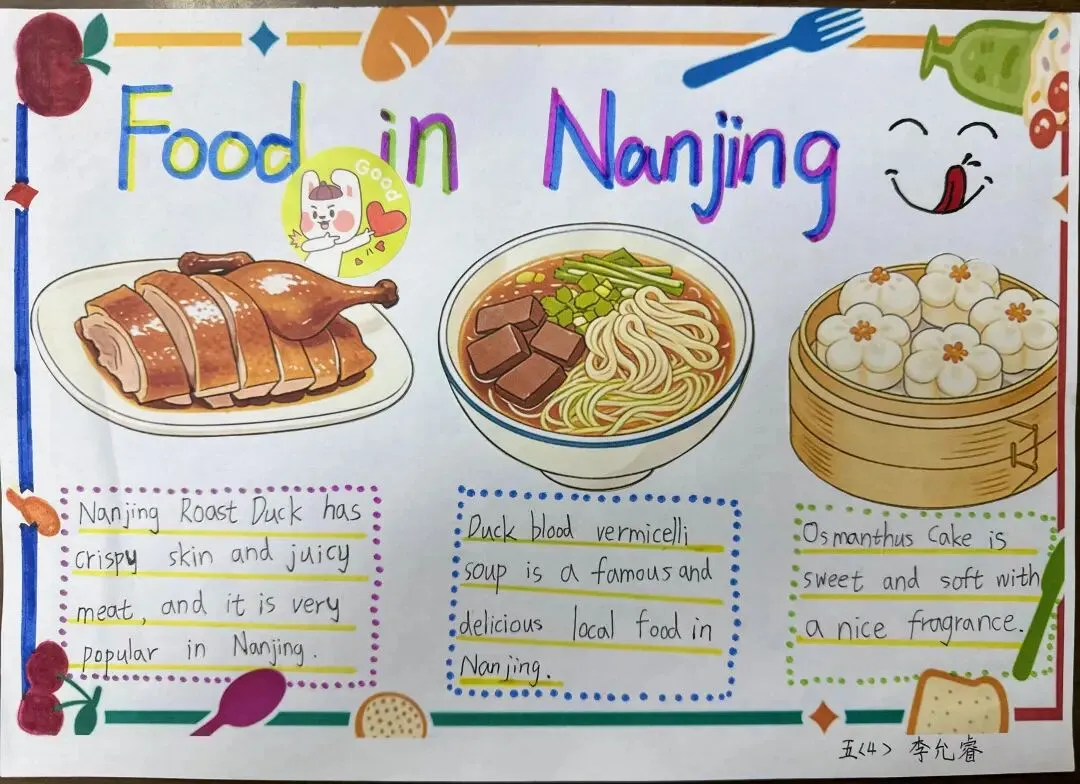 Food in Nanjing
Good
Nanjing Roast Duck has
crispy skin and juicy
meat, and it is very
popular in Nanjing.
Duck blood vermicelli
soup is a famous and
delicious local food in
Nanjing.
Osmanthus Cake is
sweet and soft with
a nice fragrance.
五<4> 李允睿